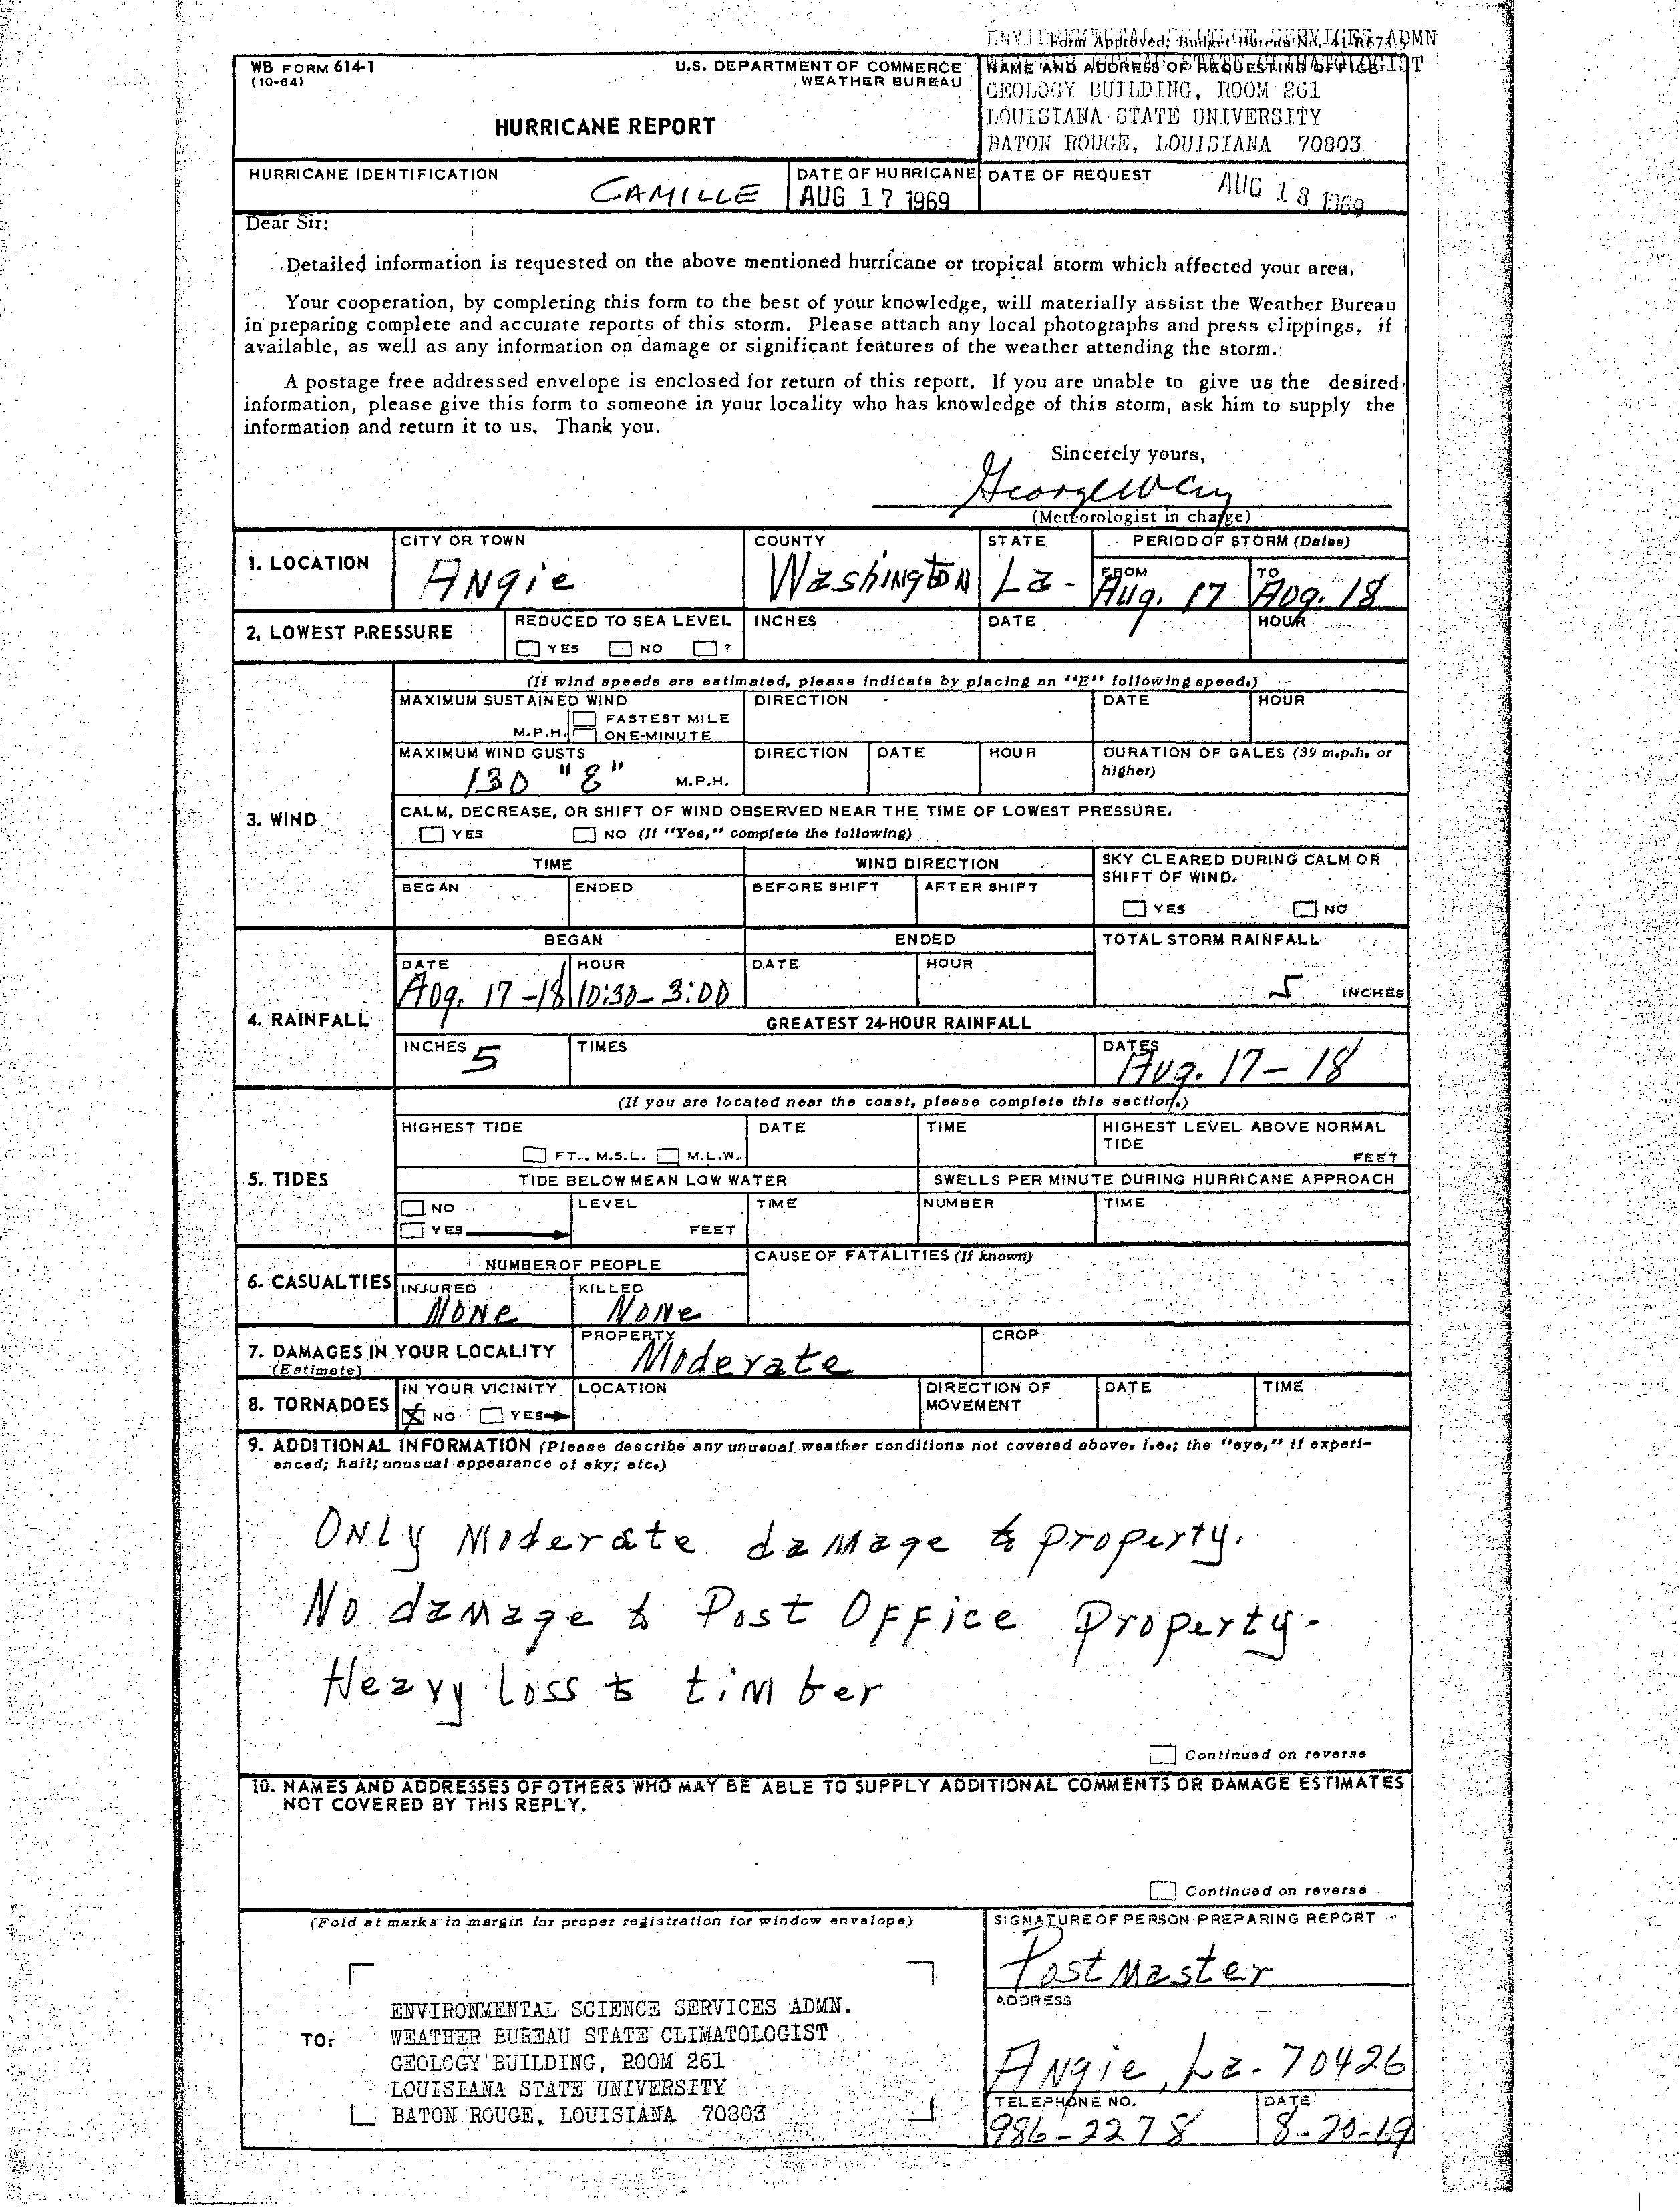 Form Approved; Budget Bureau No. 41-R674.5
WB FORM 614-1
(10-64)
U.S. DEPARTMENT OF COMMERCE
WEATHER BUREAU
HURRICANE REPORT
NAME AND ADDRESS OF REQUESTING OFFICE
GEOLOGY BUILDING, ROOM 261
LOUISIANA STATE UNIVERSITY
BATON ROUGE, LOUISIANA 70803
HURRICANE IDENTIFICATION
CAMILLE
DATE OF HURRICANE
AUG 17 1969
DATE OF REQUEST
AUG 18 1969
Dear Sir:
Detailed information is requested on the above mentioned hurricane or tropical storm which affected your area.
Your cooperation, by completing this form to the best of your knowledge, will materially assist the Weather Bureau
in preparing complete and accurate reports of this storm. Please attach any local photographs and press clippings, if
available, as well as any information on damage or significant features of the weather attending the storm.
A postage free addressed envelope is enclosed for return of this report. If you are unable to give us the desired
information, please give this form to someone in your locality who has knowledge of this storm, ask him to supply the
information and return it to us. Thank you.
Sincerely yours,
George
(Meteorologist in charge)
1. LOCATION
CITY OR TOWN
Angie
COUNTY
Washington
STATE
La-
PERIOD OF STORM (Dates)
FROM
Aug. 17
TO
Aug. 18
2. LOWEST PRESSURE
REDUCED TO SEA LEVEL
YES NO ?
INCHES
DATE
HOUR
3. WIND
(If wind speeds are estimated, please indicate by placing an "E" following speed.)
MAXIMUM SUSTAINED WIND
FASTEST MILE
M.P.H. ONE-MINUTE
DIRECTION
DATE
HOUR
MAXIMUM WIND GUSTS
130 "E" M.P.H.
DIRECTION
DATE
HOUR
DURATION OF GALES (39 m.p.h. or
higher)
CALM, DECREASE, OR SHIFT OF WIND OBSERVED NEAR THE TIME OF LOWEST PRESSURE.
YES NO (If "Yes," complete the following)
TIME
BEGAN
ENDED
WIND DIRECTION
BEFORE SHIFT
AFTER SHIFT
SKY CLEARED DURING CALM OR
SHIFT OF WIND.
YES NO
4. RAINFALL
BEGAN
DATE
Aug. 17-18
HOUR
10:30-3:00
ENDED
DATE
HOUR
TOTAL STORM RAINFALL
5 INCHES
GREATEST 24-HOUR RAINFALL
INCHES
5
TIMES
DATES
Aug. 17-18
5. TIDES
(If you are located near the coast, please complete this section.)
HIGHEST TIDE
FT., M.S.L. M.L.W.
DATE
TIME
HIGHEST LEVEL ABOVE NORMAL
TIDE
FEET
TIDE BELOW MEAN LOW WATER
NO
YES
LEVEL
FEET
TIME
SWELLS PER MINUTE DURING HURRICANE APPROACH
NUMBER
TIME
6. CASUALTIES
NUMBER OF PEOPLE
INJURED
None
KILLED
None
CAUSE OF FATALITIES (If known)
7. DAMAGES IN YOUR LOCALITY
(Estimate)
PROPERTY
Moderate
CROP
8. TORNADOES
IN YOUR VICINITY
NO YES
LOCATION
DIRECTION OF
MOVEMENT
DATE
TIME
9. ADDITIONAL INFORMATION (Please describe any unusual weather conditions not covered above, i.e.; the "eye," if experi-
enced; hail; unusual appearance of sky; etc.)
Only Moderate damage to property.
No damage to Post Office Property-
Heavy loss to timber
Continued on reverse
10. NAMES AND ADDRESSES OF OTHERS WHO MAY BE ABLE TO SUPPLY ADDITIONAL COMMENTS OR DAMAGE ESTIMATES
NOT COVERED BY THIS REPLY.
Continued on reverse
(Fold at marks in margin for proper registration for window envelope)
TO:
ENVIRONMENTAL SCIENCE SERVICES ADMN.
WEATHER BUREAU STATE CLIMATOLOGIST
GEOLOGY BUILDING, ROOM 261
LOUISIANA STATE UNIVERSITY
BATON ROUGE, LOUISIANA 70803
SIGNATURE OF PERSON PREPARING REPORT
Postmaster
ADDRESS
Angie, La-70426
TELEPHONE NO.
986-2278
DATE
8-20-69